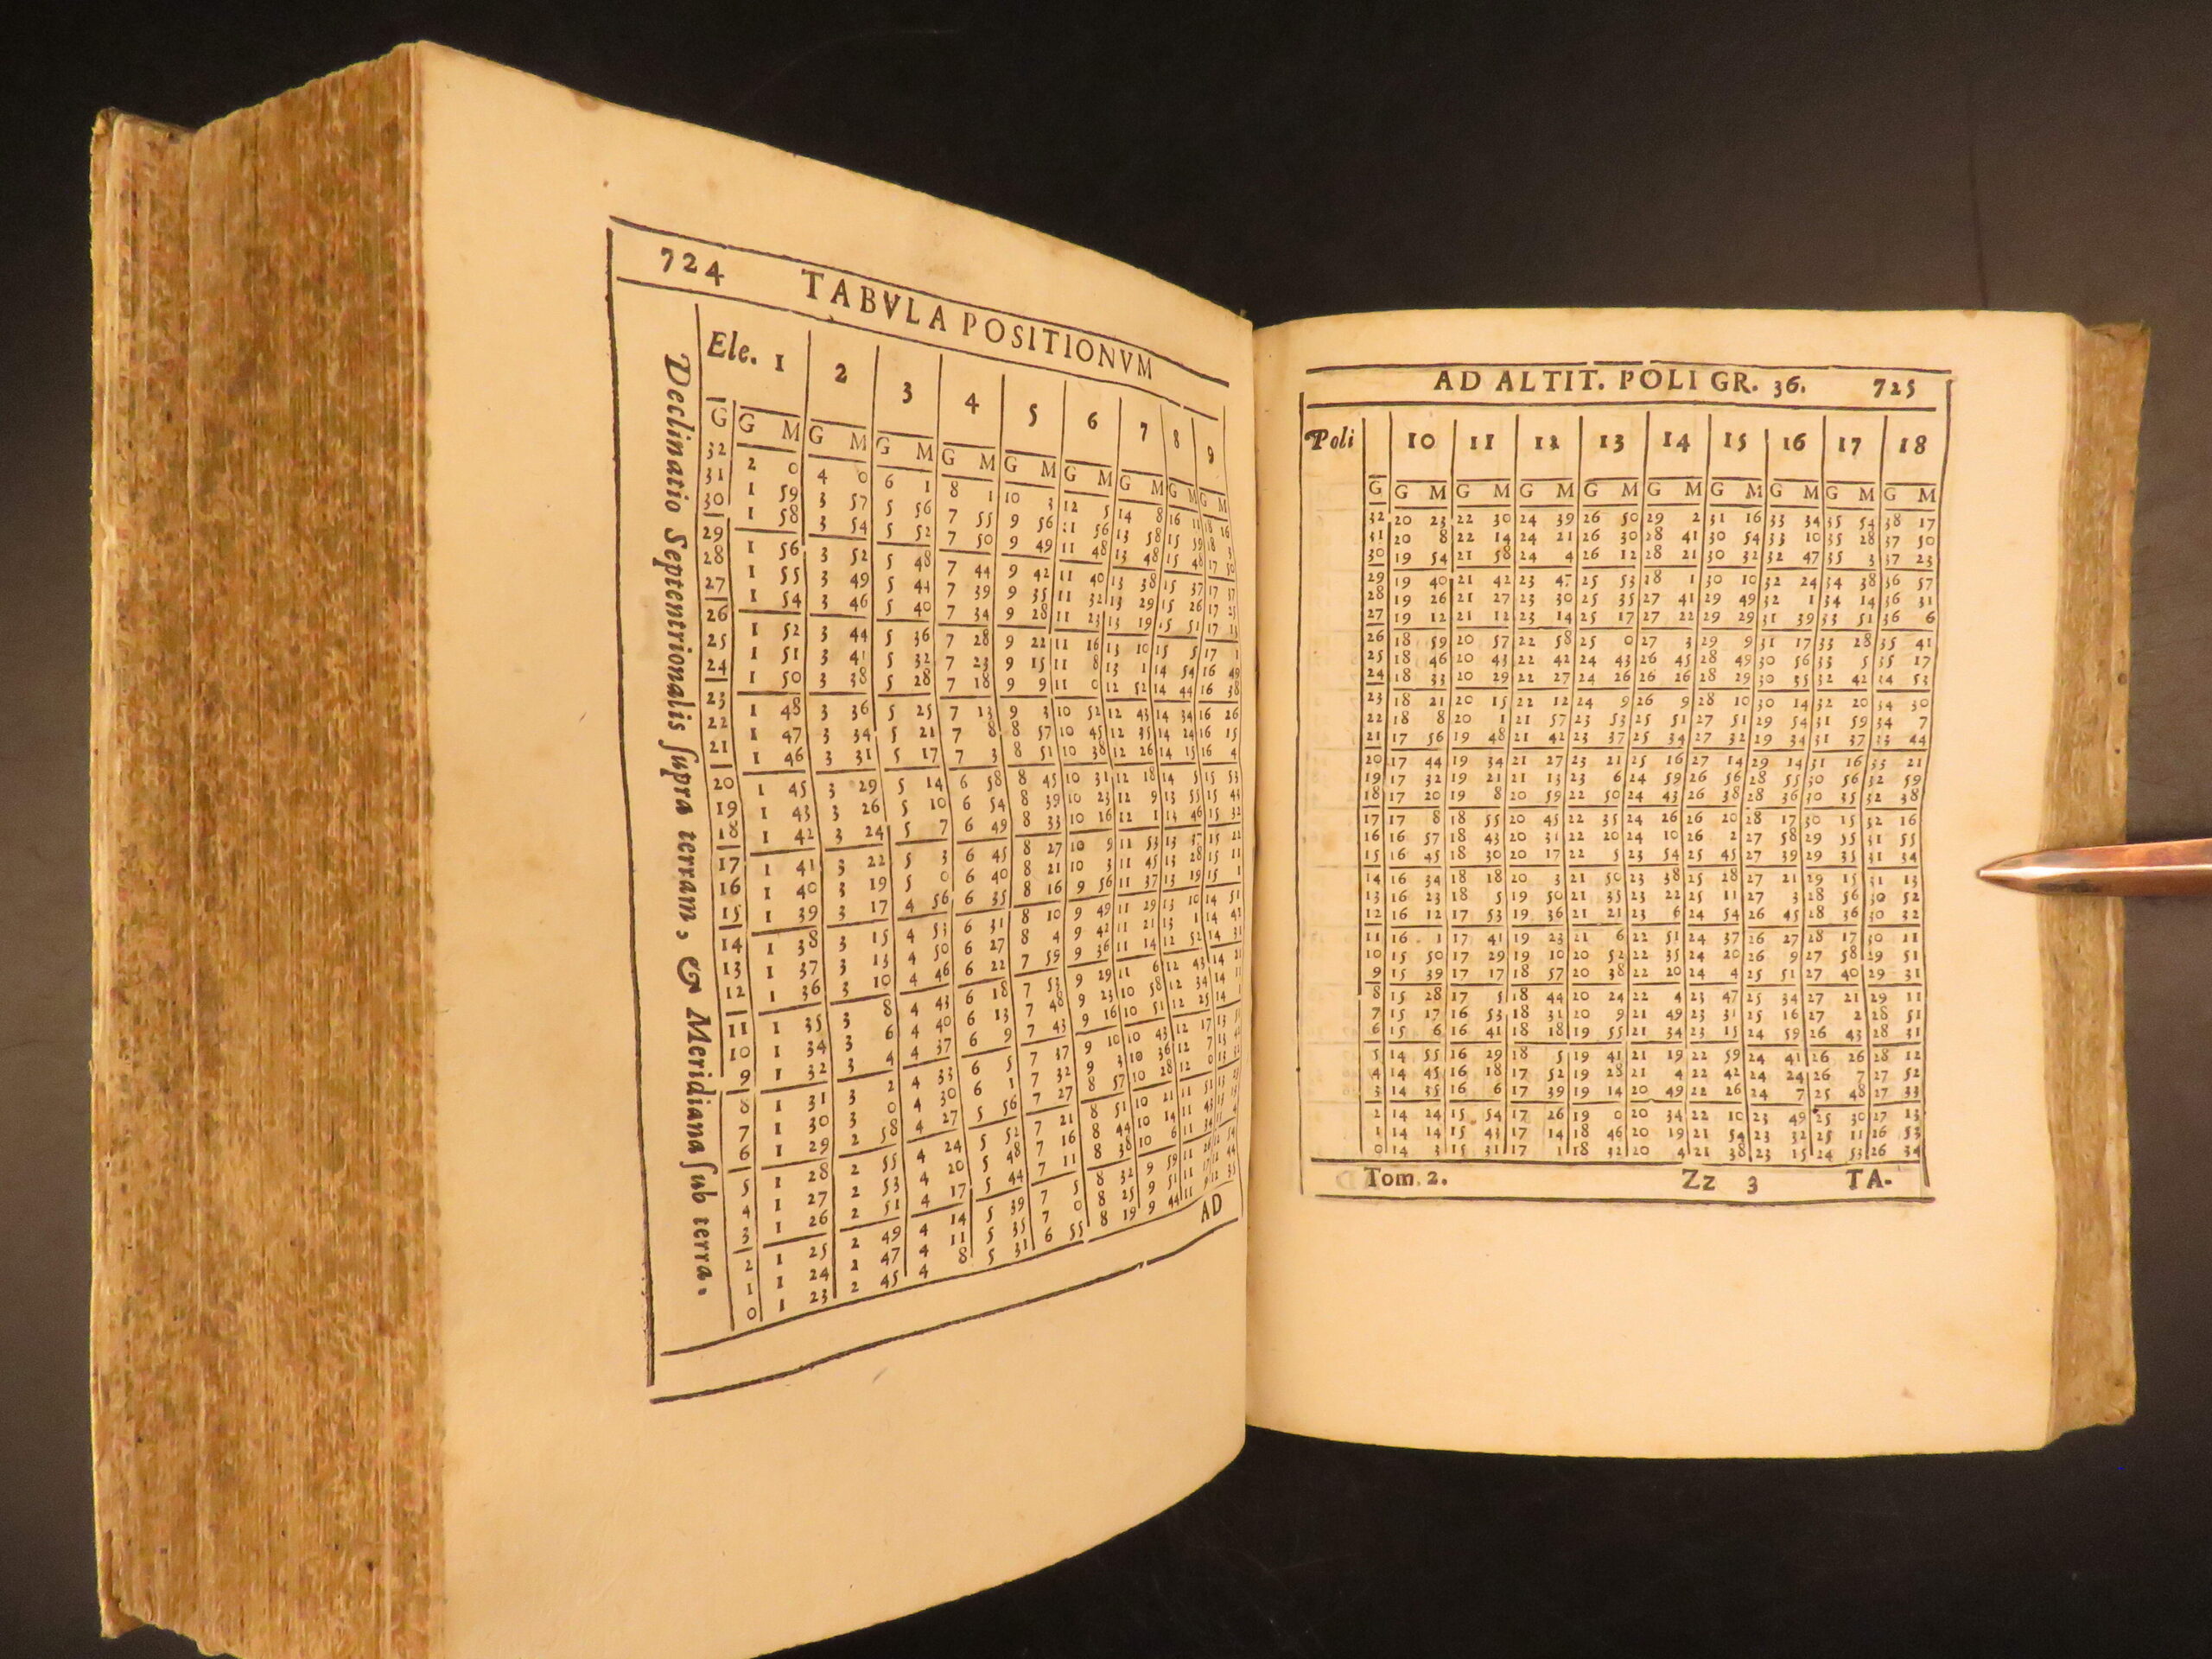 724 TABVLA POSITIONVM
Declinatio Septentrionalis ſupra terram, & Meridiana ſub terra.
Ele. 1 2 3 4 5 6 7 8 9
G G M G M G M G M G M G M G M G M G M
32 2 0 4 0 6 1 8 1 10 3 12 5 14 8 16 11 18 16
31 1 59 3 57 5 56 7 55 9 56 11 56 13 58 15 59 18 3
30 1 58 3 54 5 52 7 50 9 49 11 48 13 48 15 48 17 50
29 1 56 3 52 5 48 7 44 9 42 11 40 13 38 15 37 17 37
28 1 55 3 49 5 44 7 39 9 35 11 32 13 29 15 26 17 25
27 1 54 3 46 5 40 7 34 9 28 11 23 13 19 15 51 17 13
26 1 52 3 44 5 36 7 28 9 22 11 16 13 10 15 5 17 1
25 1 51 3 41 5 32 7 23 9 15 11 8 13 1 14 54 16 49
24 1 50 3 38 5 28 7 18 9 9 11 0 12 52 14 44 16 38
23 1 48 3 36 5 25 7 13 9 3 10 52 12 43 14 34 16 26
22 1 47 3 34 5 21 7 8 8 57 10 45 12 35 14 24 16 15
21 1 46 3 31 5 17 7 3 8 51 10 38 12 26 14 15 16 4
20 1 45 3 29 5 14 6 58 8 45 10 31 12 18 14 5 15 53
19 1 43 3 26 5 10 6 54 8 39 10 23 12 9 13 55 15 43
18 1 42 3 24 5 7 6 49 8 33 10 16 12 1 13 46 15 32
17 1 41 3 22 5 3 6 45 8 27 10 9 11 53 13 37 15 22
16 1 40 3 19 5 0 6 40 8 21 10 3 11 45 13 28 15 11
15 1 39 3 17 4 56 6 35 8 16 9 56 11 37 13 19 15 1
14 1 38 3 15 4 53 6 31 8 10 9 49 11 29 13 10 14 51
13 1 37 3 13 4 50 6 27 8 4 9 42 11 21 13 1 14 41
12 1 36 3 10 4 46 6 22 7 59 9 36 11 14 12 52 14 31
11 1 35 3 8 4 43 6 18 7 53 9 29 11 6 12 43 14 21
10 1 34 3 6 4 40 6 13 7 48 9 23 10 58 12 34 14
9 1 32 3 4 4 37 6 9 7 43 9 16 10 51 12 25 14
8 1 31 3 2 4 33 6 5 7 37 9 10 10 43 12 17 13
7 1 30 3 0 4 30 6 1 7 32 9 3 10 36 12 7
6 1 29 2 58 4 27 5 56 7 27 8 57 10 28 12 0
5 1 28 2 55 4 24 5 52 7 21 8 51 10 21 11 51
4 1 27 2 53 4 20 5 48 7 16 8 44 10 14 11 43
3 1 26 2 51 4 17 5 44 7 11 8 38 10 6 11 34
2 1 25 2 49 4 14 5 39 7 5 8 32 9 59 11
1 1 24 2 47 4 11 5 35 7 0 8 25 9 51 11
0 1 23 2 45 4 8 5 31 6 55 8 19 9 44 11
AD
AD ALTIT. POLI GR. 36. 725
Poli 10 11 12 13 14 15 16 17 18
G G M G M G M G M G M G M G M G M G M
32 20 23 22 30 24 39 26 50 29 2 31 16 33 34 35 54 38 17
31 20 8 22 14 24 21 26 30 28 41 30 54 33 10 35 28 37 50
30 19 54 21 58 24 4 26 12 28 21 30 32 32 47 35 3 37 23
29 19 40 21 42 23 47 25 53 28 1 30 10 32 24 34 38 36 57
28 19 26 21 27 23 30 25 35 27 41 29 49 32 1 34 14 36 31
27 19 12 21 12 23 14 25 17 27 22 29 29 31 39 33 51 36 6
26 18 59 20 57 22 58 25 0 27 3 29 9 31 17 33 28 35 41
25 18 46 20 43 22 42 24 43 26 45 28 49 30 56 33 5 35 17
24 18 33 20 29 22 27 24 26 26 26 28 29 30 35 32 42 34 53
23 18 21 20 15 22 12 24 9 26 9 28 10 30 14 32 20 34 30
22 18 8 20 1 21 57 23 53 25 51 27 51 29 54 31 59 34 7
21 17 56 19 48 21 42 23 37 25 34 27 32 29 34 31 37 33 44
20 17 44 19 34 21 27 23 21 25 16 27 14 29 14 31 16 33 21
19 17 32 19 21 21 13 23 6 24 59 26 56 28 55 30 56 32 59
18 17 20 19 8 20 59 22 50 24 43 26 38 28 36 30 35 32 38
17 17 8 18 55 20 45 22 35 24 26 26 20 28 17 30 15 32 16
16 16 57 18 43 20 31 22 20 24 10 26 2 27 58 29 55 31 55
15 16 45 18 30 20 17 22 5 23 54 25 45 27 39 29 35 31 34
14 16 34 18 18 20 3 21 50 23 38 25 28 27 21 29 15 31 13
13 16 23 18 5 19 50 21 35 23 22 25 11 27 3 28 56 30 52
12 16 12 17 53 19 36 21 21 23 6 24 54 26 45 28 36 30 32
11 16 1 17 41 19 23 21 6 22 51 24 37 26 27 28 17 30 11
10 15 50 17 29 19 10 20 52 22 35 24 20 26 9 27 58 29 51
9 15 39 17 17 18 57 20 38 22 20 24 4 25 51 27 40 29 31
8 15 28 17 5 18 44 20 24 22 4 23 47 25 34 27 21 29 11
7 15 17 16 53 18 31 20 9 21 49 23 31 25 16 27 2 28 51
6 15 6 16 41 18 18 19 55 21 34 23 15 24 59 26 43 28 31
5 14 55 16 29 18 5 19 41 21 19 22 59 24 41 26 26 28 12
4 14 45 16 18 17 52 19 28 21 4 22 42 24 24 26 7 27 52
3 14 35 16 6 17 39 19 14 20 49 22 26 24 7 25 48 27 33
2 14 24 15 54 17 26 19 0 20 34 22 10 23 49 25 30 27 13
1 14 14 15 43 17 14 18 46 20 19 21 54 23 32 25 11 26 53
0 14 3 15 31 17 1 18 32 20 4 21 38 23 15 24 53 26 34
Tom. 2. Zz 3 TA-